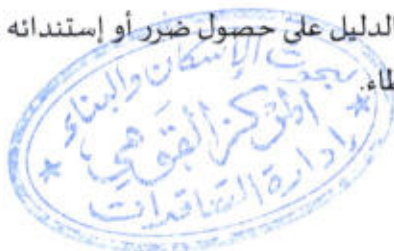 الدليل على حصول ضرر أو إستندائه
طاء.
لبحوث الإسكان والبناء
المركز القومي
إدارة التعاقدات